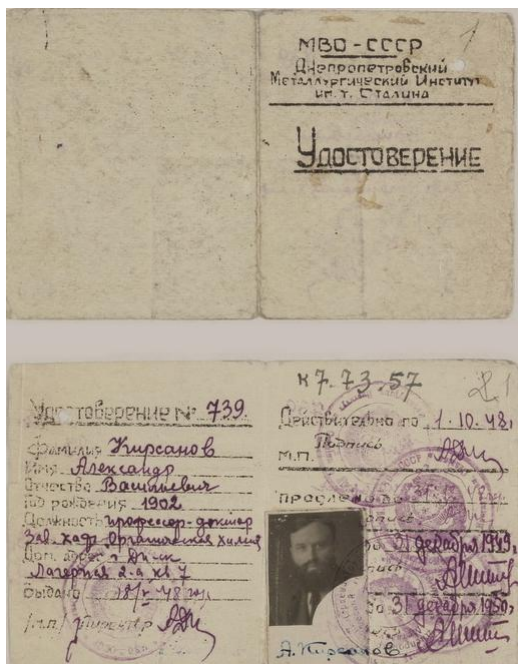 1
МВО-СССР
Днепропетровский
Металлургический Институт
им. т. Сталина
Удостоверение
К 7. 73. 57
Удостоверение № 739
Фамилия Кирсанов
Имя Александр
Отчество Васильевич
Год рождения 1902
Должность профессор-доктор
Зав. каф. Органическая химия
Дом. адрес г. Дн-ск
Лагерная 2-а кв 7
Выдано 18/V-48
Директор
Действительно по 1.10.48
Подпись
М.П.
Продлено до 31
Подпись
до 31 декабря 1949
до 31 декабря 1950
А. Кирсанов